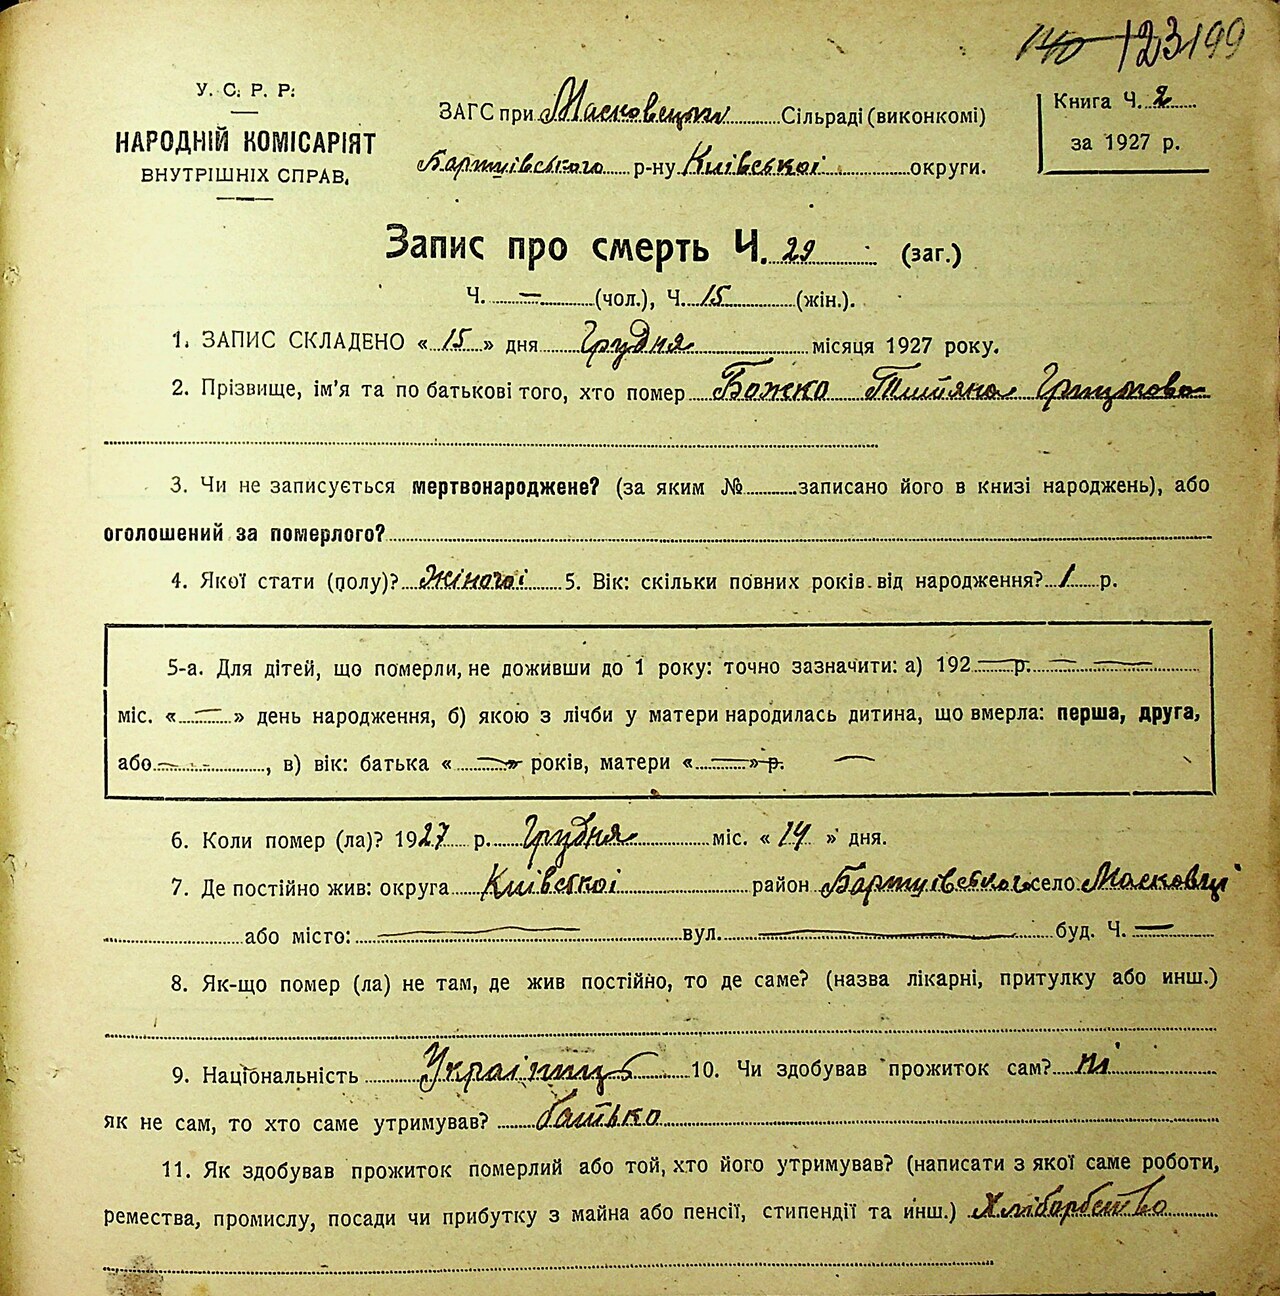 140 123 199
У. С. Р. Р.
НАРОДНІЙ КОМІСАРІЯТ
ВНУТРІШНІХ СПРАВ.
ЗАГС при Масковецькій Сільраді (виконкомі)
р-ну Київської округи.
Книга Ч. 2
за 1927 р.
Запис про смерть Ч. 29 (заг.)
Ч. — (чол.), Ч. 15 (жін.).
1. ЗАПИС СКЛАДЕНО « 15 » дня Грудня місяця 1927 року.
2. Прізвище, ім'я та по батькові того, хто помер Божко Титяна
3. Чи не записується мертвонароджене? (за яким № записано його в книзі народжень), або
оголошений за померлого?
4. Якої стати (полу)? Жіночої 5. Вік: скільки повних років від народження? 1 р.
5-а. Для дітей, що померли, не доживши до 1 року: точно зазначити: а) 192 — р. — —
міс. « — » день народження, б) якою з лічби у матери народилась дитина, що вмерла: перша, друга,
або — , в) вік: батька « — » років, матери « — » р. —
6. Коли помер (ла)? 1927 р. Грудня міс. « 14 » дня.
7. Де постійно жив: округа Київської район село Масковці
або місто: — вул. — буд. Ч. —
8. Як-що помер (ла) не там, де жив постійно, то де саме? (назва лікарні, притулку або инш.)
9. Національність Українць 10. Чи здобував прожиток сам? ні
як не сам, то хто саме утримував? батько
11. Як здобував прожиток померлий або той, хто його утримував? (написати з якої саме роботи,
ремества, промислу, посади чи прибутку з майна або пенсії, стипендії та инш.) Хлібарбство